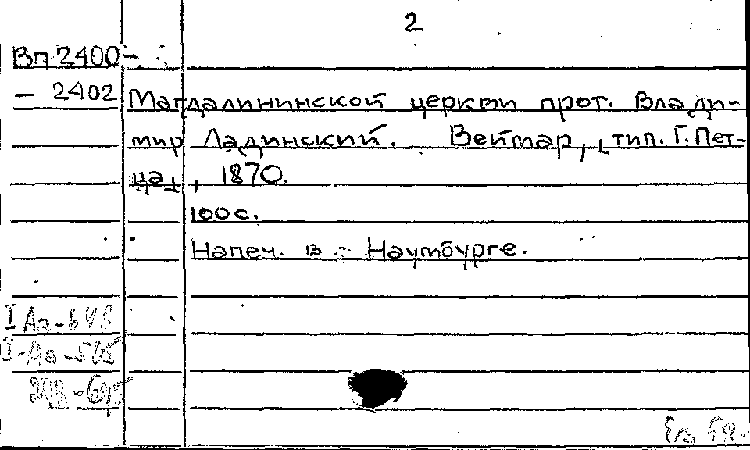 2
Вп 2400-
- 2402 Магдалининской церкви прот. Влади-
мир Ладинский. Веймар, тип. Г. Пет-
ца, 1870.
100 с.
Напеч. в Наумбурге.